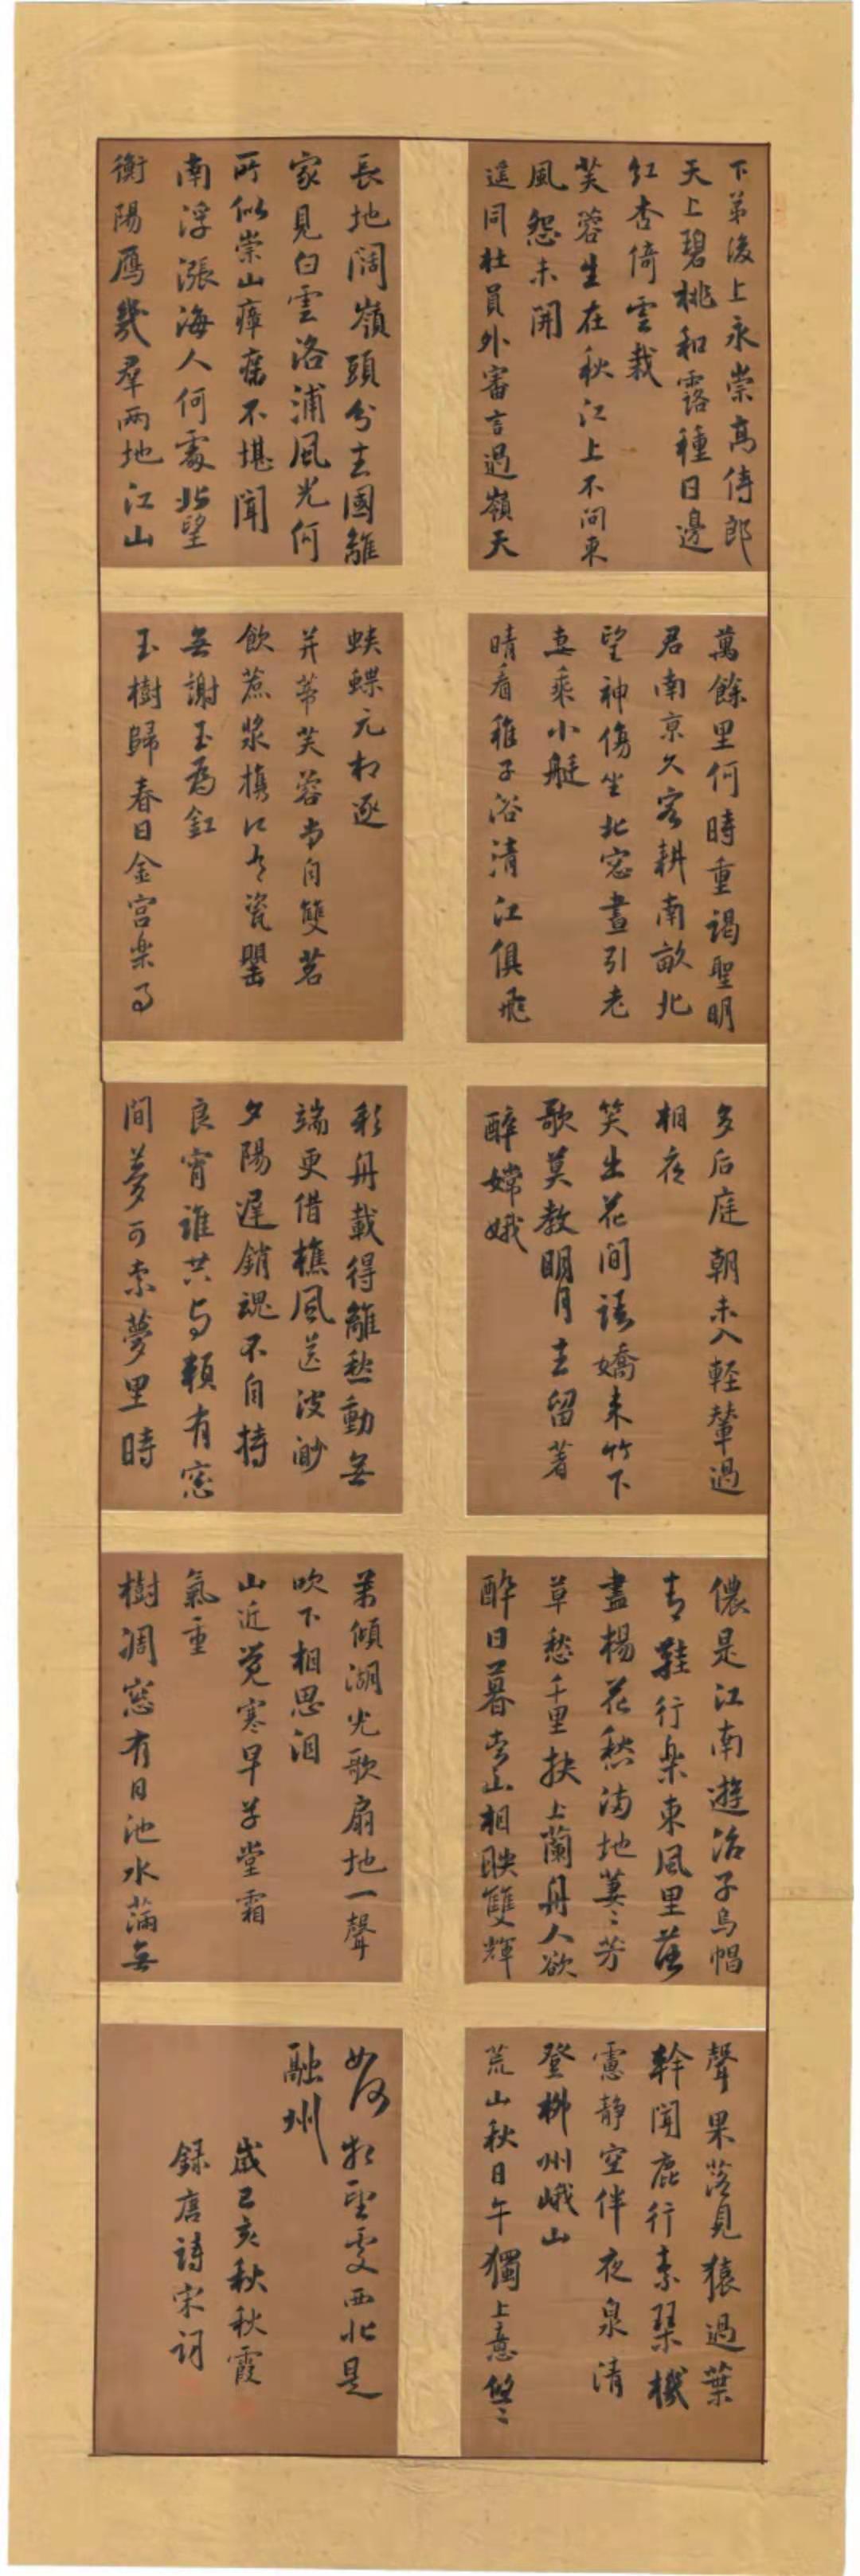 下第後上永崇高侍郎
天上碧桃和露種日邊
紅杏倚雲栽
芙蓉生在秋江上不向東
風怨未開
遥同杜員外審言過嶺天
長地闊嶺頭分去國離
家見白雲洛浦風光何
所似崇山瘴癘不堪聞
南浮漲海人何處北望
衡陽雁幾羣兩地江山
萬餘里何時重謁聖明
君南京久客耕南畝北
望神傷坐北窓晝引老
妻乘小艇
晴看稚子浴清江俱飛
蛺蝶元相逐
并蒂芙蓉本自雙茗
飲蔗漿攜所有瓷罌
無謝玉爲缸
玉樹歸春日金宫樂事
多后庭朝未入輕輦過
相夜
笑出花間語嬌来竹下
歌莫教明月去留著
醉嫦娥
彩舟載得離愁動無
端更借樵風送波渺
夕陽遲銷魂不自持
良宵誰共與賴有窓
間夢可索夢里時
儂是江南遊冶子烏帽
青鞋行樂東風里落
盡楊花愁滿地萋〻芳
草愁千里扶上蘭舟人欲
醉日暮青山相映雙
萬傾湖光歌扇地一聲
吹下相思泪
山近覺寒早草堂霜
氣重
樹凋窓有日池水滿無
聲果落見猿過葉
幹聞鹿行素琴機
慮静空伴夜泉清
登柳州峨山
荒山秋日午獨上意悠〻
如何望西北是
融州
歲己亥秋秋霞
録唐詩宋詞